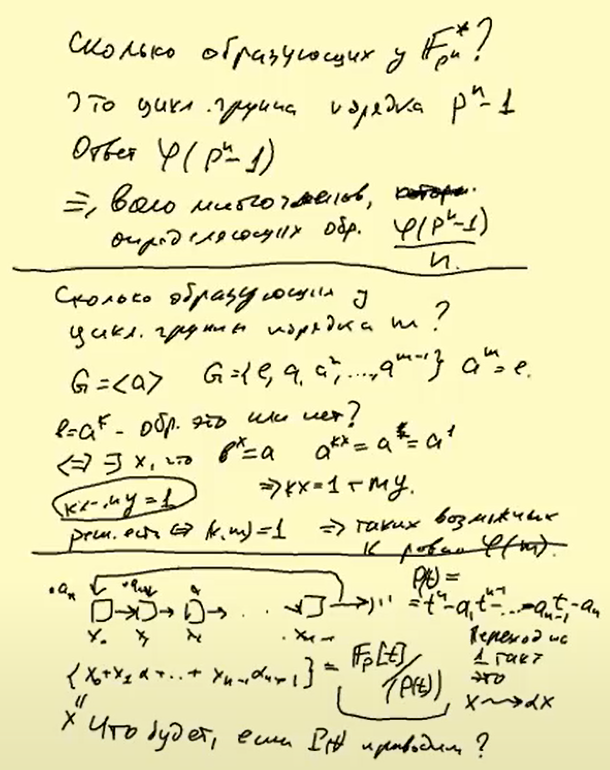 Сколько образующих у F*_{pⁿ}?
Это цикл. группа порядка pⁿ-1
Ответ φ(pⁿ-1)
⇒, Всего многочленов,
определяющих обр. φ(pⁿ-1)/n.
Сколько образующих у
цикл. группы порядка m?
G=<a> G={e, a, a²,...,a^{m-1}} a^m=e.
b=a^k - обр. это или нет?
⇔ ∃ x, что b^x=a a^{kx}=a¹
⇒kx=1+my.
kx-my=1
реш. есть ⇔ (k,m)=1 ⇒ таких возможных
k ровно φ(m).
P(t)=
=tⁿ-a₁tⁿ⁻¹-...-a_{n-1}t-a_n
x₀ x₁ x₂ ... x_{n-1}
Переход на
1 такт
это
x⇝αx
{x₀+x₁α+...+x_{n-1}α_{n-1}} = F_p[t]/(P(t))
x
Что будет, если P(t) приводим?